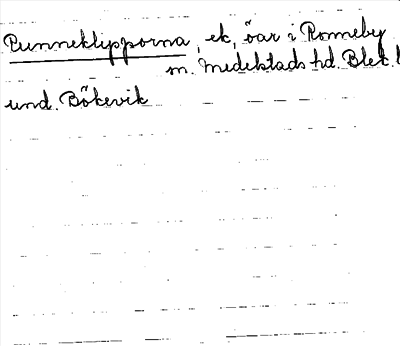 Runneklipporna, ek, öar i Ronneby
m. Medelstads hd. Blek. l
und. Bökevik